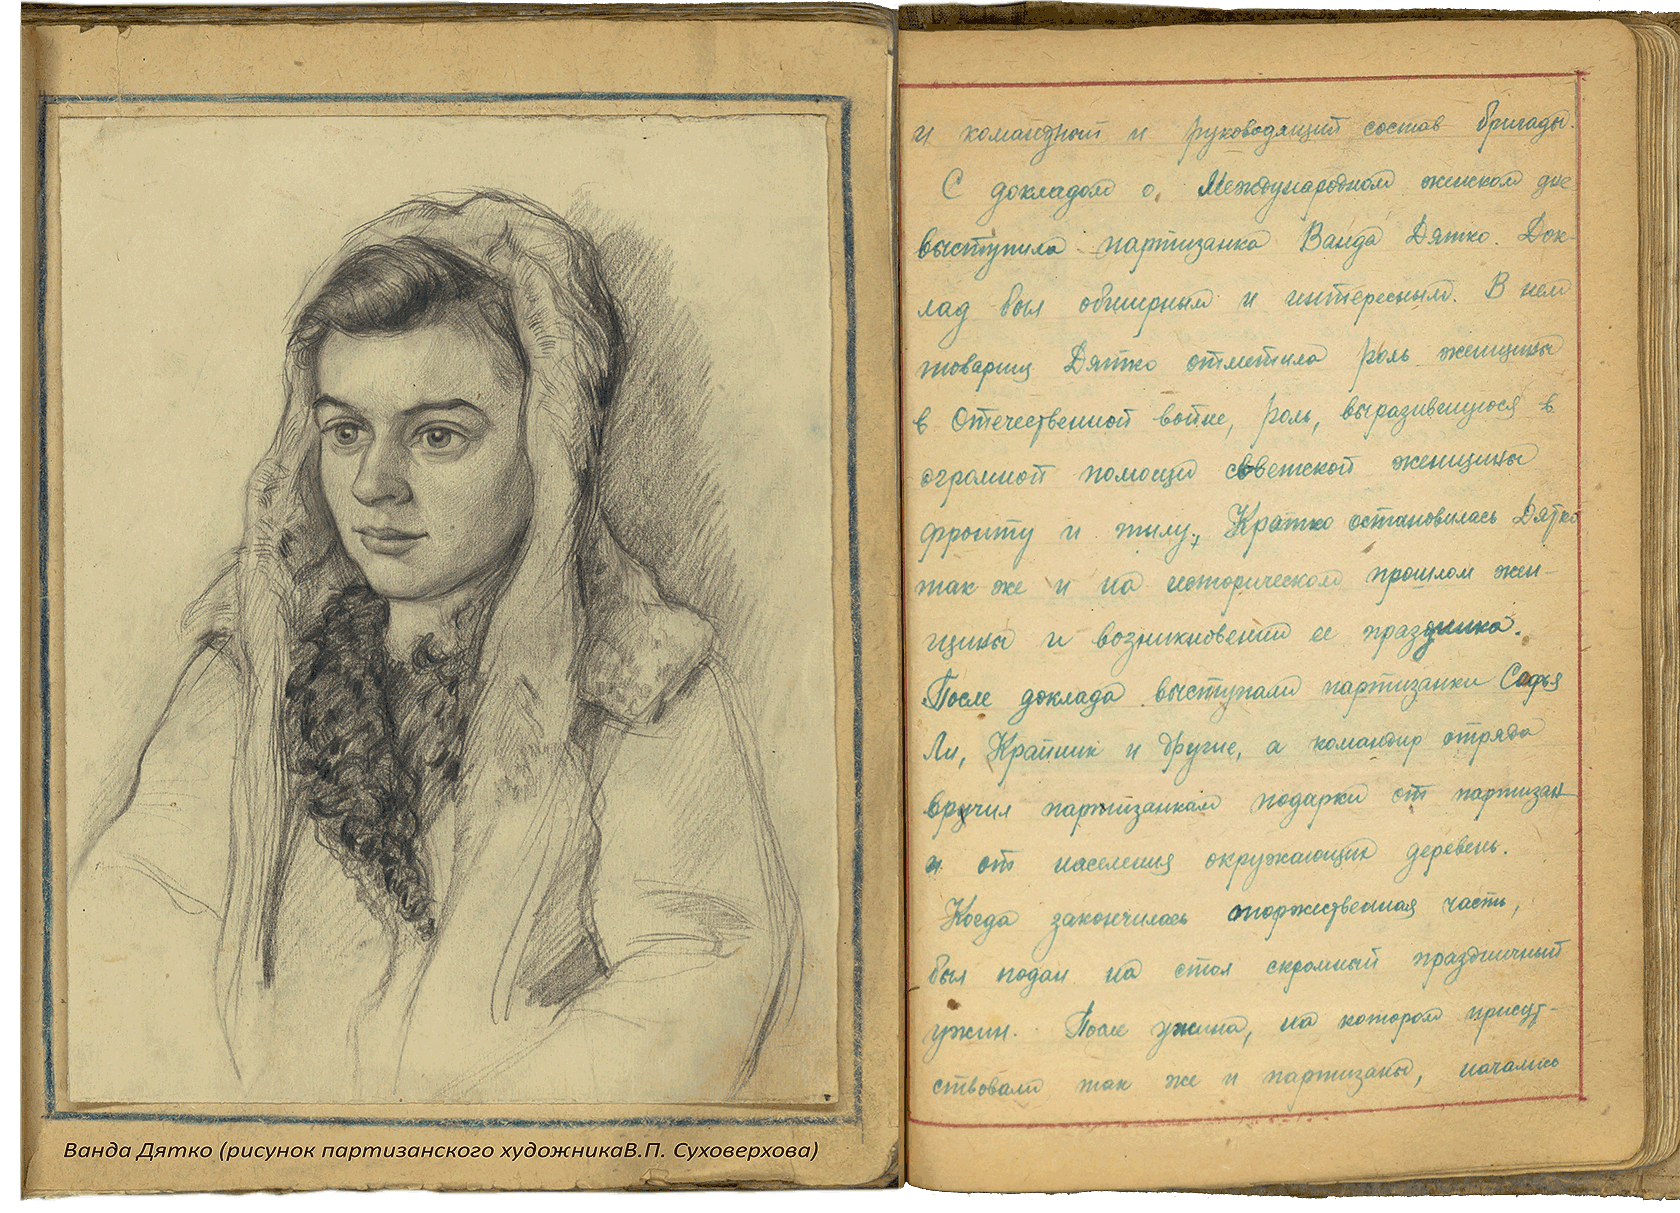 Ванда Дятко (рисунок партизанского художникаВ.П. Суховерхова)
и командный и руководящий состав бригады.
С докладом о Международном женском дне
выступила партизанка Ванда Дятко. Док-
лад был обширным и интересным. В нем
товарищ Дятко отметила роль женщины
в Отечественной войне, роль, выразившуюся в
огромной помощи советской женщины
фронту и тылу. Кратко остановилась Дятко
так же и на историческом прошлом жен-
щины и возникновении ее праздника.
После доклада выступали партизанки Софья
Ли, Крайник и другие, а командир отряда
вручил партизанкам подарки от партизан
и от населения окружающих деревень.
Когда закончилась торжественная часть,
был подан на стол скромный праздничный
ужин. После ужина, на котором присут-
ствовали так же и партизаны, начались